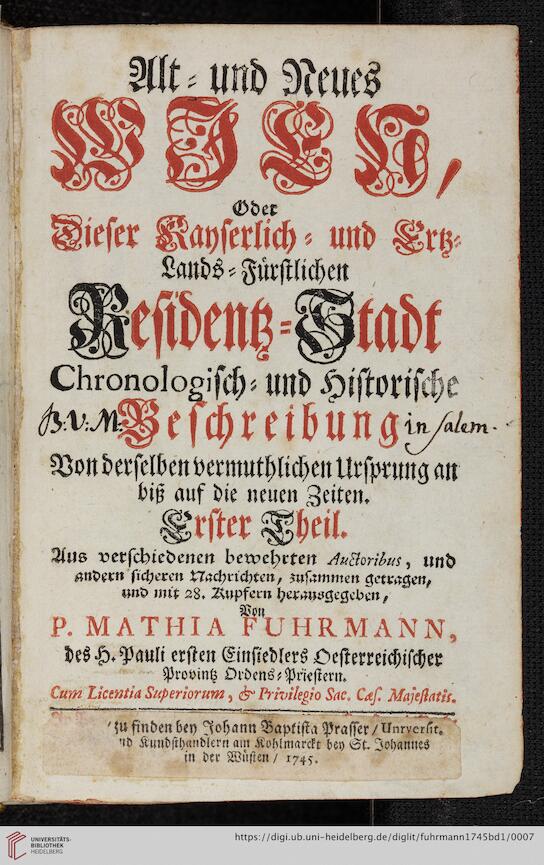 Alt- und Neues
WIEN,
Oder
Dieser Kayserlich- und Ertz-
Lands-Fürstlichen
Residentz-Stadt
Chronologisch- und Historische
B: V: M: Beschreibung in Salem.
Von derselben vermuthlichen Ursprung an
biß auf die neuen Zeiten.
Erster Theil.
Aus verschiedenen bewehrten Auctoribus, und
andern sicheren Nachrichten, zusammen getragen,
und mit 28. Kupfern herausgegeben,
Von
P. MATHIA FUHRMANN,
des H. Pauli ersten Einsiedlers Oesterreichischer
Provintz Ordens-Priestern.
Cum Licentia Superiorum, & Privilegio Sac. Cæs. Majestatis.
zu finden bey Johann Baptista Prasser / Unrversit.
nd Kunsthandlern am Kohlmarckt bey St. Johannes
in der Wüsten / 1745.
UNIVERSITÄTS-
BIBLIOTHEK
HEIDELBERG
https://digi.ub.uni-heidelberg.de/diglit/fuhrmann1745bd1/0007